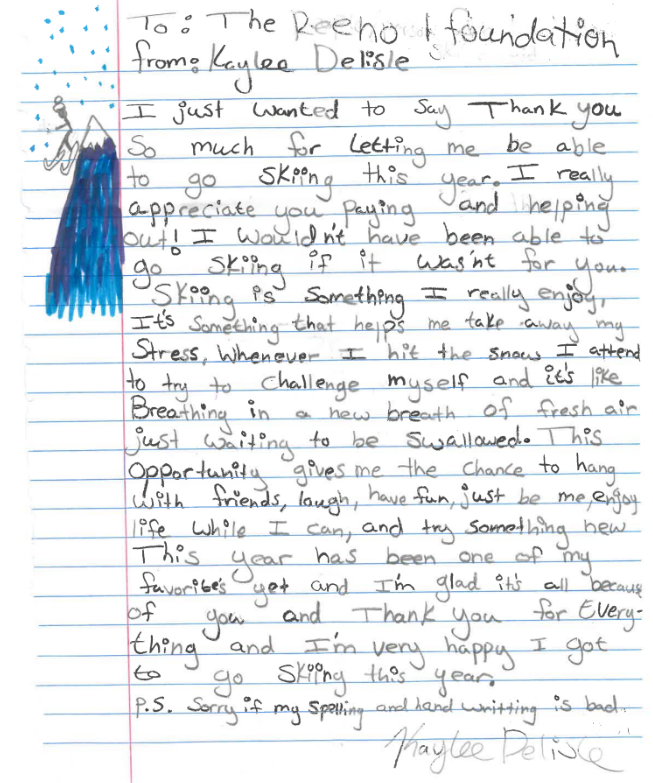 To: The Reeho foundation
from: Kaylee Delisle
I just wanted to say Thank you
So much for Letting me be able
to go skiing this year. I really
appreciate you paying and helping
out! I wouldn't have been able to
go skiing if it wasn't for you.
Skiing is something I really enjoy,
It's something that helps me take away my
Stress, whenever I hit the snow I attend
to try to challenge myself and it's like
Breathing in a new breath of fresh air
just waiting to be swallowed. This
opportunity gives me the chance to hang
with friends, laugh, have fun, just be me, enjoy
life while I can, and try something new
This year has been one of my
favorite's yet and I'm glad it's all because
of you and Thank you for Every-
thing and I'm very happy I got
to go skiing this year.
P.S. Sorry if my spelling and hand writting is bad.
Khaylee Delisle